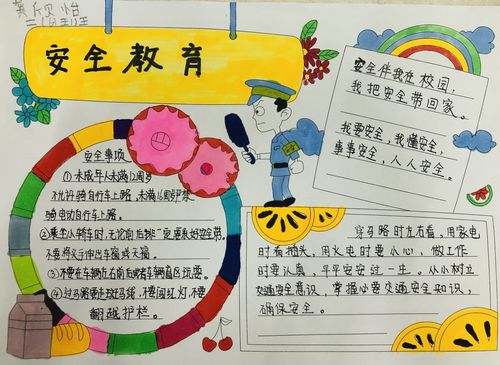 安全教育
安全伴我在校园，
我把安全带回家。
我要安全，我懂安全，
事事安全，人人安全。
安全事项
①未成年人未满12周岁
不允许骑自行车上路，未满16周岁禁
骑电动自行车上路。
②乘坐小轿车时，无论前后排一定要系好安全带，
不要将头手伸出车窗或天窗。
③不要在车辆左右前后或者车辆盲区玩耍。
④过马路要走斑马线，不要闯红灯，不要
翻越护栏。
穿马路时左右看，用家电
时看插头，用火电时要小心，做工作
时要认真，平平安安过一生。从小树立
交通安全意识，掌握必要交通安全知识，
确保安全。